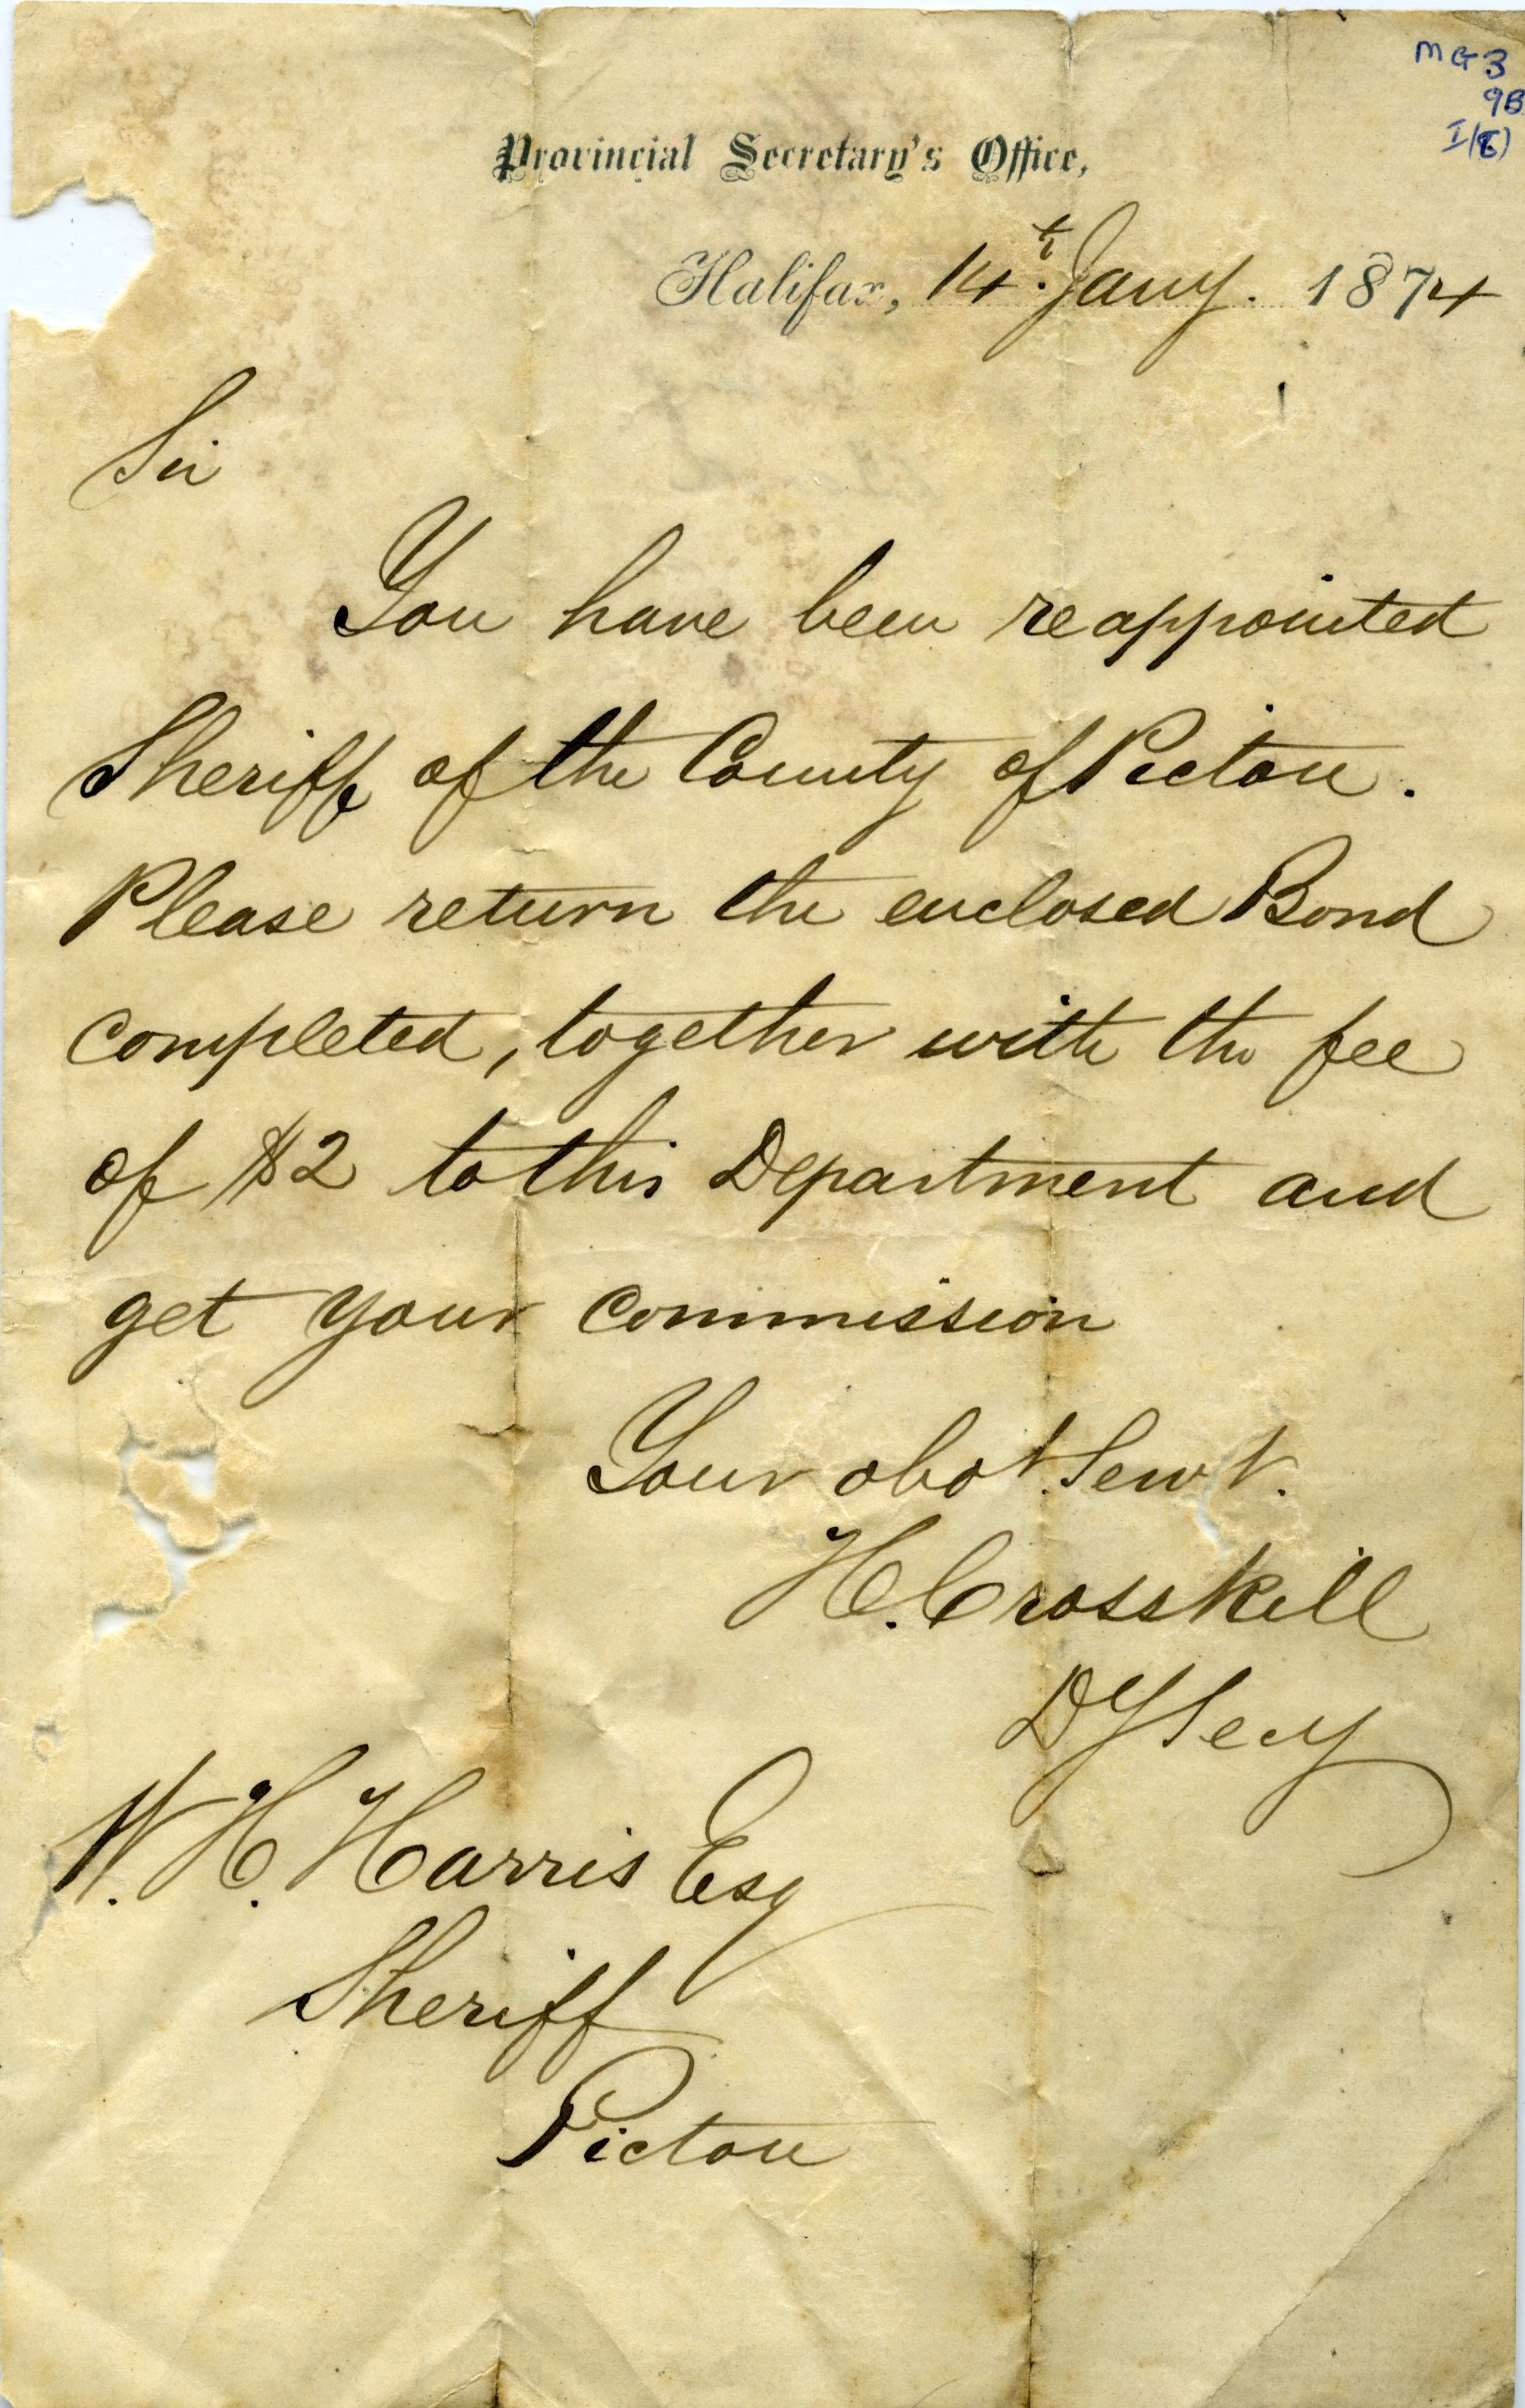 MG3
9B
Provincial Secretary's Office,
Halifax, 14th. Jany. 1874
Sir
You have been reappointed
Sheriff of the County of Pictou.
Please return the enclosed Bond
completed, together with the fee
of $2 to this Department and
get your commission
Your obdt. Servt.
H. Crosskill
Dy Secy
W. H. Harris Esq
Sheriff
Pictou